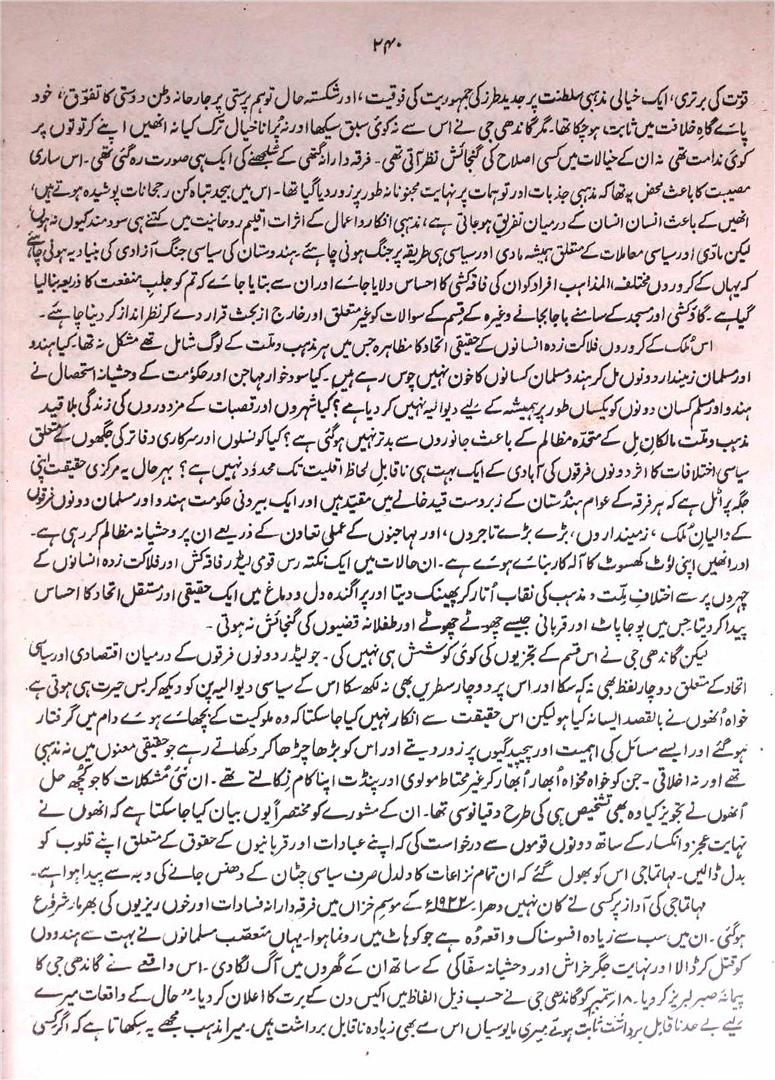 ۲۴۰
قوّت کی برتری، ایک خیالی مذہبی سلطنت پر جدید طرز کی جمہوریت کی فوقیت، اور شکستہ حال توہم پرستی پر جارحانہ وطن دوستی کا تفوّق، خود
پائے گاہِ خلافت میں ثابت ہو چکا تھا۔ مگر گاندھی جی نے اس سے نہ کوئی سبق سیکھا اور نہ پُرانا خیال ترک کیا نہ انھیں اپنے کرتوتوں پر
کوئی ندامت تھی نہ ان کے خیالات میں کسی اصلاح کی گنجائش نظر آتی تھی۔ فرقہ دارانہ گتھی کے سُلجھنے کی ایک ہی صورت رہ گئی تھی۔ اس ساری
مصیبت کا باعث محض یہ تھا کہ مذہبی جذبات اور توہمات پر نہایت مجنونانہ طور پر زور دیا گیا تھا۔ اس میں بیحد تباہ کن رجحانات پوشیدہ ہوتے ہیں،
انھیں کے باعث انسان انسان کے درمیان تفریق ہو جاتی ہے، مذہبی افکار و اعمال کے اثرات اقلیم روحانیت میں کتنے ہی سود مند کیوں نہ ہوں
لیکن مادّی اور سیاسی معاملات کے متعلق ہمیشہ مادی اور سیاسی ہی طریقہ پر جنگ ہونی چاہئے۔ ہندوستان کی سیاسی جنگ آزادی کی بنیاد یہ ہونی چاہئے
کہ یہاں کے کروروں مختلف المذاہب افراد کو ان کی فاقہ کشی کا احساس دلایا جائے اور ان سے بتایا جائے کہ تم کو جلبِ منفعت کا ذریعہ بنا لیا
گیا ہے۔ گاؤکشی اور مسجد کے سامنے باجا بجانے وغیرہ کے قسم کے سوالات کو غیر متعلق اور خارج از بحث قرار دے کر نظر انداز کر دینا چاہئے۔
اس مُلک کے کروروں فلاکت زدہ انسانوں کے حقیقی اتحاد کا مظاہرہ جس میں ہر مذہب و ملت کے لوگ شامل تھے مشکل نہ تھا۔ کیا ہندو
اور مسلمان زمیندار دونوں مل کر ہندو مسلمان کسانوں کا خون نہیں چوس رہے ہیں۔ کیا سود خوار مہاجن اور حکومت کے وحشیانہ استحصال نے
ہندو اور مسلم کسان دونوں کو یکساں طور پر ہمیشہ کے لیے دیوالیہ نہیں کر دیا ہے؟ کیا شہروں اور قصبات کے مزدوروں کی زندگی بلا قید
مذہب و ملت مالکانِ مِل کے متحدہ مظالم کے باعث جانوروں سے بدتر نہیں ہو گئی ہے؟ کیا کونسلوں اور سرکاری دفاتر کی جگہوں کے متعلق
سیاسی اختلافات کا اثر دونوں فرقوں کی آبادی کے ایک بہت ہی ناقابل لحاظ اقلیت تک محدود نہیں ہے؟ بہر حال یہ مرکزی حقیقت اپنی
جگہ پر اٹل ہے کہ ہر فرقہ کے عوام ہندُستان کے زبردست قید خانے میں مقید ہیں اور ایک بیرونی حکومت ہندو اور مسلمان دونوں فرقوں
کے والیانِ مُلک، زمینداروں، بڑے بڑے تاجروں، اور مہاجنوں کے عملی تعاون کے ذریعے ان پر وحشیانہ مظالم کر رہی ہے۔
اور انھیں اپنی لُوٹ کھسوٹ کا آلہ کار بنائے ہوئے ہے۔ ان حالات میں ایک نکتہ رس قومی لیڈر فاقہ کش اور فلاکت زدہ انسانوں کے
چہروں پر سے اختلافِ ملّت و مذہب کی نقاب اُتار کر پھینک دیتا اور پراگندہ دل و دماغ میں ایک حقیقی اور مستقل اتحاد کا احساس
پیدا کر دیتا جس میں پوجا پاٹ اور قربانی جیسے چھوٹے چھوٹے اور طفلانہ قضیوں کی گنجائش نہ ہوتی۔
لیکن گاندھی جی نے اس قسم کے تجزیوں کی کوئی کوشش ہی نہیں کی۔ جو لیڈر دونوں فرقوں کے درمیان اقتصادی اور سیاسی
اتحاد کے متعلق دو چار لفظ بھی نہ کہہ سکا اور اس پر دو چار سطریں بھی نہ لکھ سکا اس کے سیاسی دیوالیہ پن کو دیکھ کر بس حیرت ہی ہوتی ہے
خواہ اُنھوں نے بالقصد ایسا نہ کیا ہو لیکن اس حقیقت سے انکار نہیں کیا جا سکتا کہ وہ ملوکیت کے بچھائے ہوئے دام میں گرفتار
ہو گئے اور ایسے مسائل کی اہمیت اور پیچیدگیوں پر زور دیتے اور اس کو بڑھا چڑھا کر دکھاتے رہے جو حقیقی معنوں میں نہ مذہبی
تھے اور نہ اخلاقی۔ جن کو خواہ مخواہ اُبھار اُبھار کر غیر محتاط مولوی اور پنڈت اپنا کام نکالتے تھے۔ ان نئی مُشکلات کا جو کچھ حل
اُنھوں نے تجویز کیا وہ بھی تشخیص ہی کی طرح دقیانوسی تھا۔ ان کے مشورے کو مختصراً یوں بیان کیا جا سکتا ہے کہ انھوں نے
نہایت عجز و انکسار کے ساتھ دونوں قوموں سے درخواست کی کہ اپنے عبادات اور قربانیوں کے حقوق کے متعلق اپنے قلوب کو
بدل ڈالیں۔ مہاتماجی اس کو بھول گئے کہ ان تمام نزاعات کا دلدل صرف سیاسی چٹان کے دھنس جانے کی وجہ سے پیدا ہوا ہے۔
مہاتماجی کی آواز پر کسی نے کان نہیں دھرا۔ ۱۹۲۴ء کے موسمِ خزاں میں فرقہ دارانہ فسادات اور خوں ریزیوں کی بھرمار شروع
ہو گئی۔ ان میں سب سے زیادہ افسوسناک واقعہ وہ ہے جو کوہاٹ میں رونما ہوا۔ یہاں متعصّب مسلمانوں نے بہت سے ہندوؤں
کو قتل کر ڈالا اور نہایت جگر خراش اور وحشیانہ سفّاکی کے ساتھ ان کے گھروں میں آگ لگا دی۔ اس واقعے نے گاندھی جی کا
پیمانۂ صبر لبریز کر دیا۔ ۱۸ ستمبر کو گاندھی جی نے حسب ذیل الفاظ میں اکیس دن کے برت کا اعلان کر دیا۔ ”حال کے واقعات میرے
لیے بے حد ناقابلِ برداشت ثابت ہوئے میری مایوسیاں اس سے بھی زیادہ ناقابلِ برداشت ہیں۔ میرا مذہب مجھے یہ سکھاتا ہے کہ اگر کسی